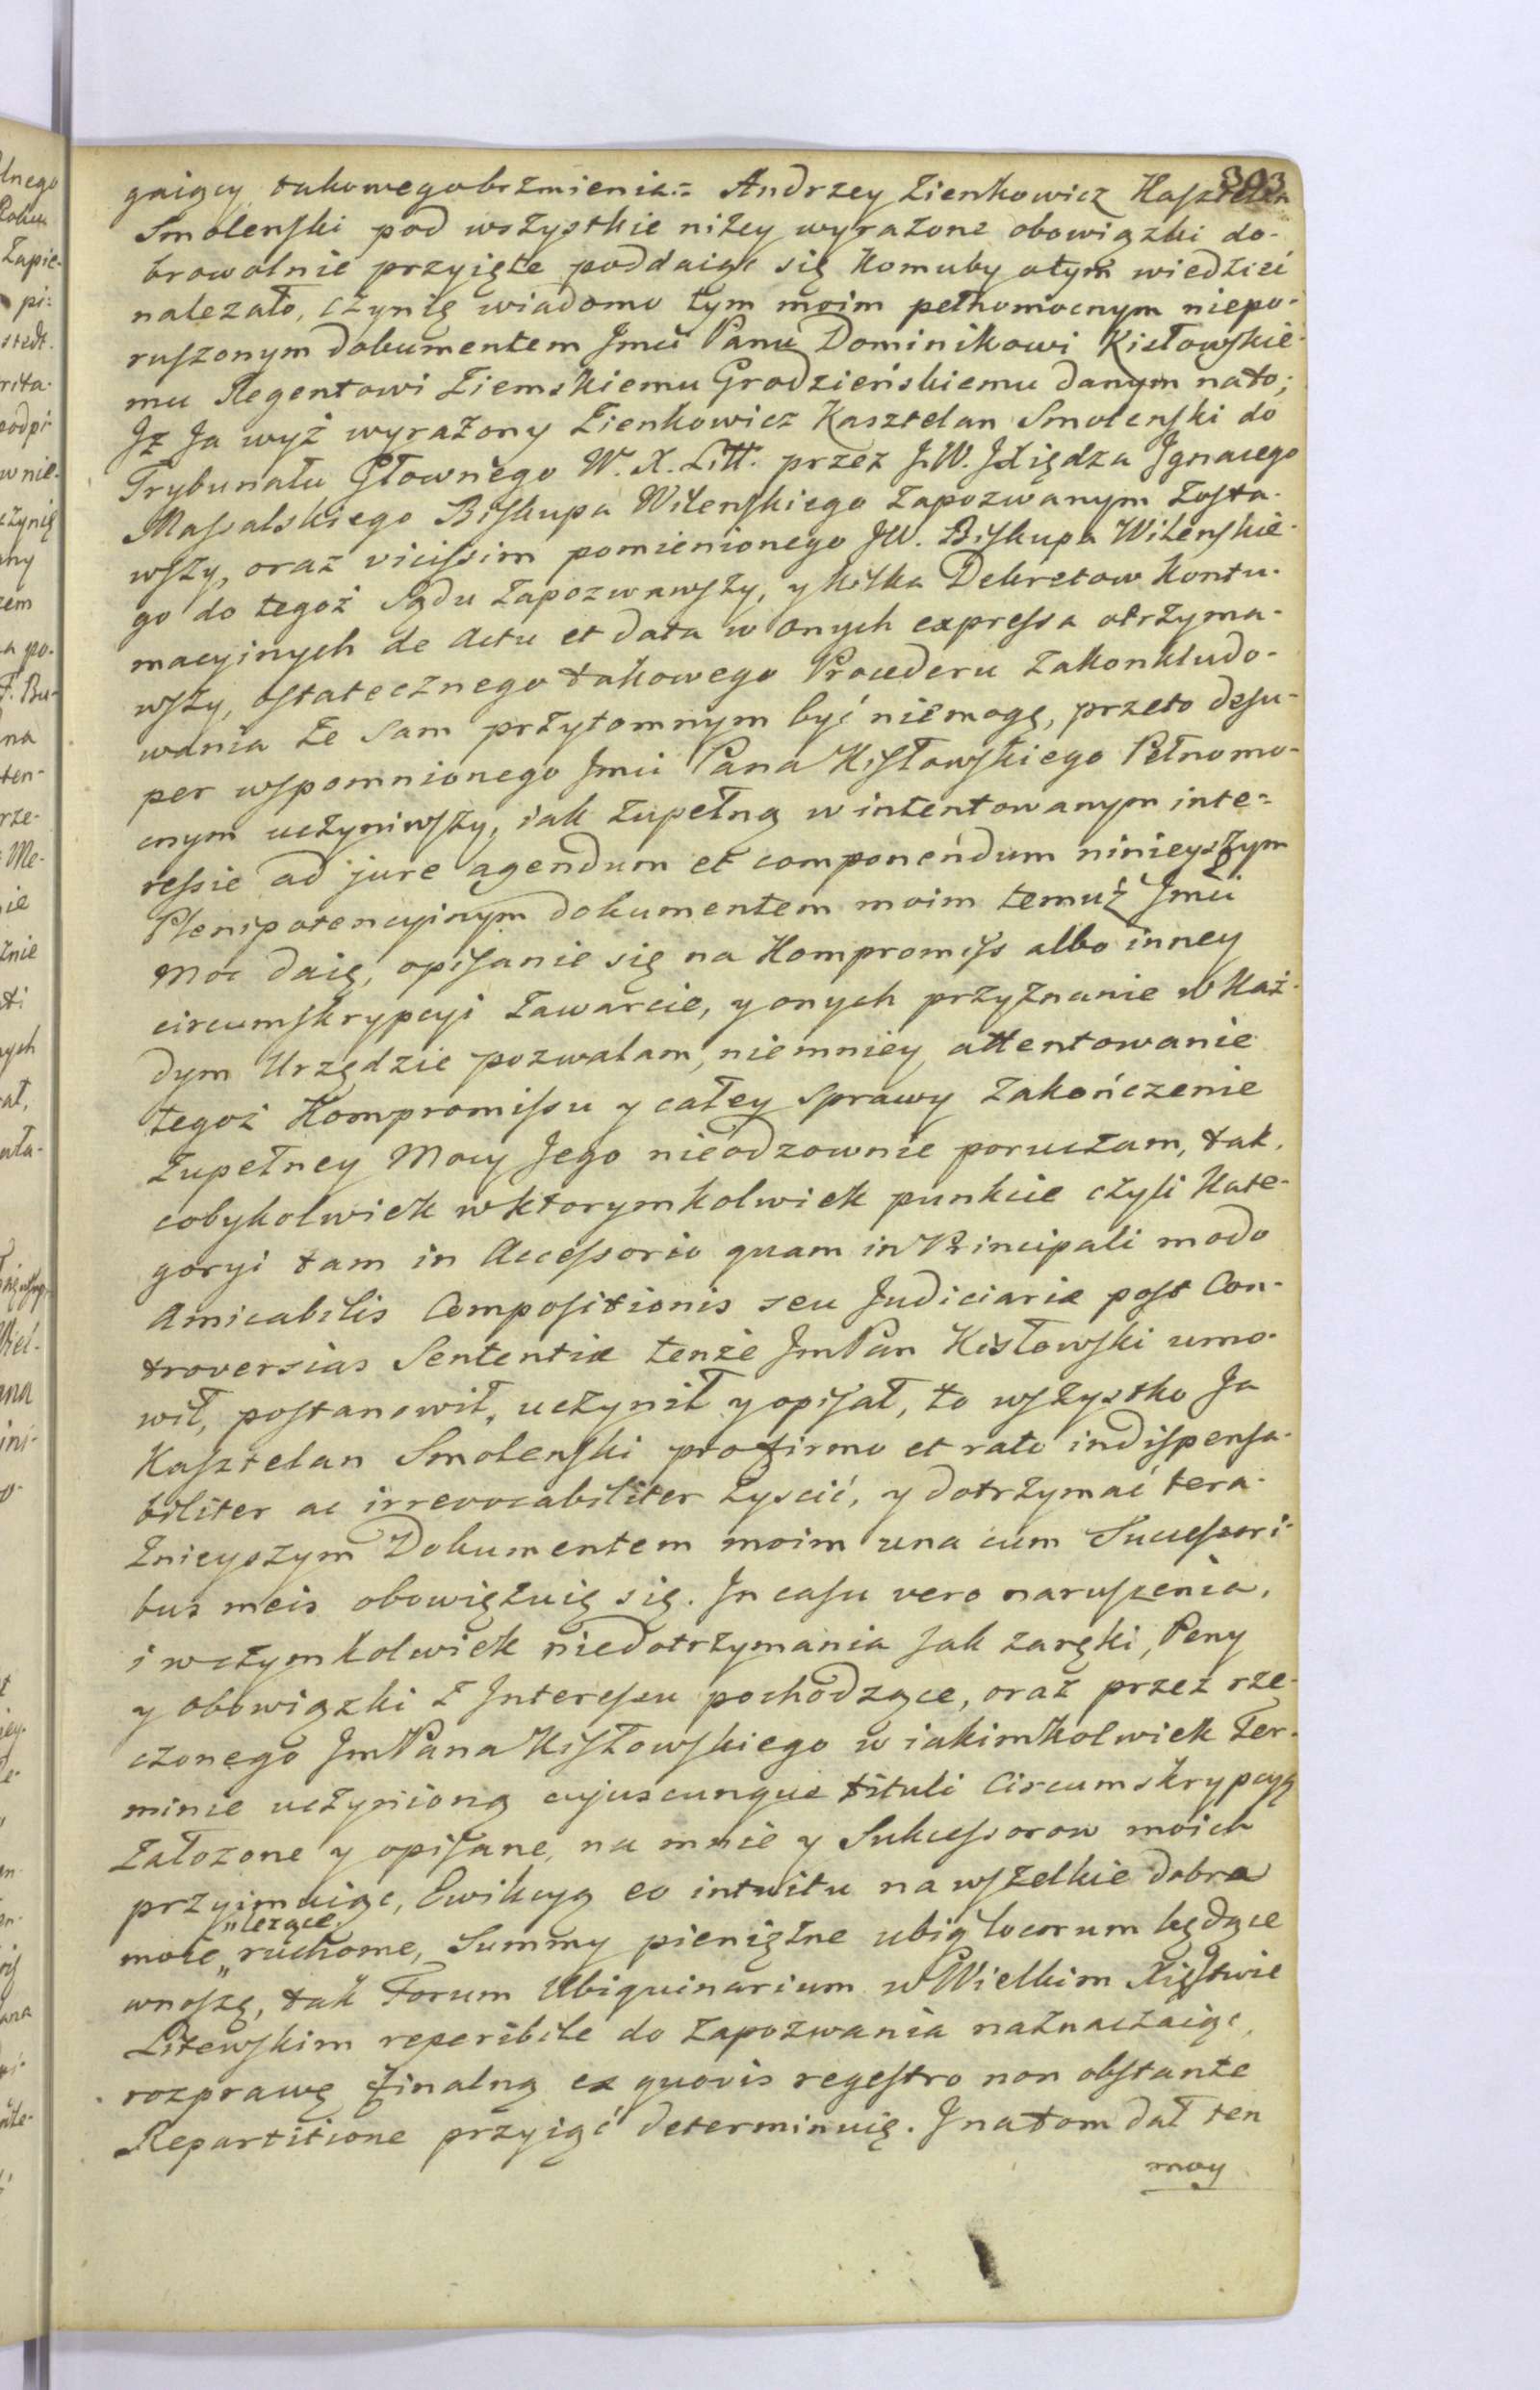 303
gaiący takowegobrzmienia.= Andrzey Zienkowicz Kasztelan
Smolenski pod wszystkie niżey wyrażone obowiązki do-
browolnie przyięte poddaiąc się Komuby otym wiedzieć
nalezało, czynię wiadomo tym moim pełnomocnym niepo-
ruszonym dokumentem Jmći Panu Dominikowi Kisłowskie-
mu Regentowi Ziemskiemu Grodzieńskiemu danym nato;
Jż Ja wyż wyrażony Zienkowicz Kasztelan Smolenski do
Trybunału Głownego W. X. Litt. przez J.W. JXiędza Jgnacego
Massalskiego Biskupa Wilenskiego Zapozwanym Zosta-
wszy, oraz vicissim pomienionego JW. Biskupa Wilenskie-
go do tegoż Sądu Zapozwawszy, y kilka Dekretow Kontu-
macyinych de Actu et data w onych expressa otrzyma-
wszy, ostatecznego takowego Procederu Zakonkludo-
wania że sam przytomnym być niemogę, przeto desu-
per wspomnionego Jmći Pana Kisłowskiego Pełnomo-
cnym uczyniwszy, iak zupełną w intentowanym inte=
ressie ad jure agendum et componendum ninieyszym
Plenipotencyinym dokumentem moim temuż Jmći
Moc daię, opisanie się na Kompromiss albo inney
circumskrypcyi Zawarcie, y onych przyznanie w Każ-
dym Urzędzie pozwalam, niemniey attentowanie
tegoż Kompromissu y całey Sprawy Zakończenie
Zupełney Mocy Jego nieodzownie poruczam, tak,
cobykolwiek wktorymkolwiek punkcie czyli Kate-
goryi tam in Accessorio quam in Principali modo
Amicabilis Compositionis seu Judiciariæ post Con-
troversias Sententiæ tenże JmPan Kisłowski umo-
wił, postanowił, uczynił y opisał, to wszystko Ja
Kasztelan Smolenski pro firmo et rato indispensa-
biliter ac irrevocabiliter Zyscić, y dotrzymać tera-
Znieyszym Dokumentem moim una cum Successori-
bus meis obowięzuię się. Jn casu vero naruszenia,
i wczymkolwiek niedotrzymania Jak zaręki, Peny
y obowiązki z Jnteressu pochodzące, oraz przez rze-
czonego JmPana Kisłowskiego w iakimkolwiek Ter-
minie uczynioną cujuscunque tituli Circumskrypcyą
Założone y opisane, na mnie y Sukcessorow moich
przyimuiąc, Ewikcyą eo intuitu na wszelkie dobra
„leżące,
moie „ruchome, Summy pieniężne ubiq locorum będące
wnoszę, tak Forum Ubiquinarium w Wielkim Xięstwie
Litewskim reperibile do Zapozwania naznaczaiąc,
rozprawę finalną ex quovis regestro non obstante
Repartitione przyiąć determinuię. Jnatom dał ten
moy